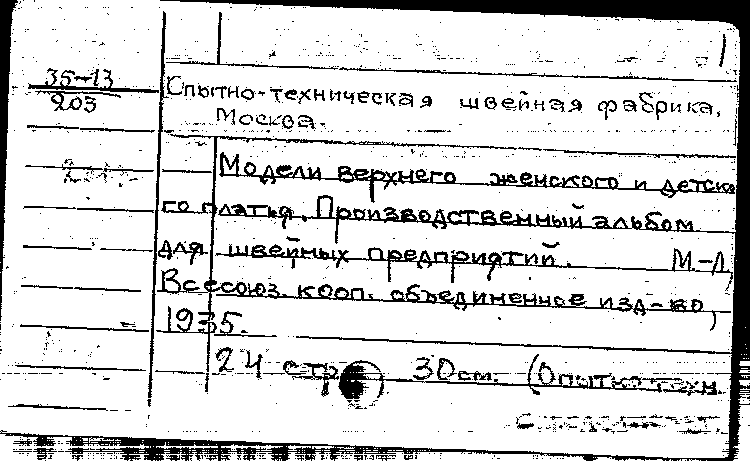 35-13
203
Опытно-техническая швейная фабрика,
Москва.
Модели верхнего женского и детско
го платья. Производственный альбом
для швейных предприятий. М-Л,
Всесоюз. кооп. объединенное изд-во,
1935.
24 стр 30см. (Опытно-техн.